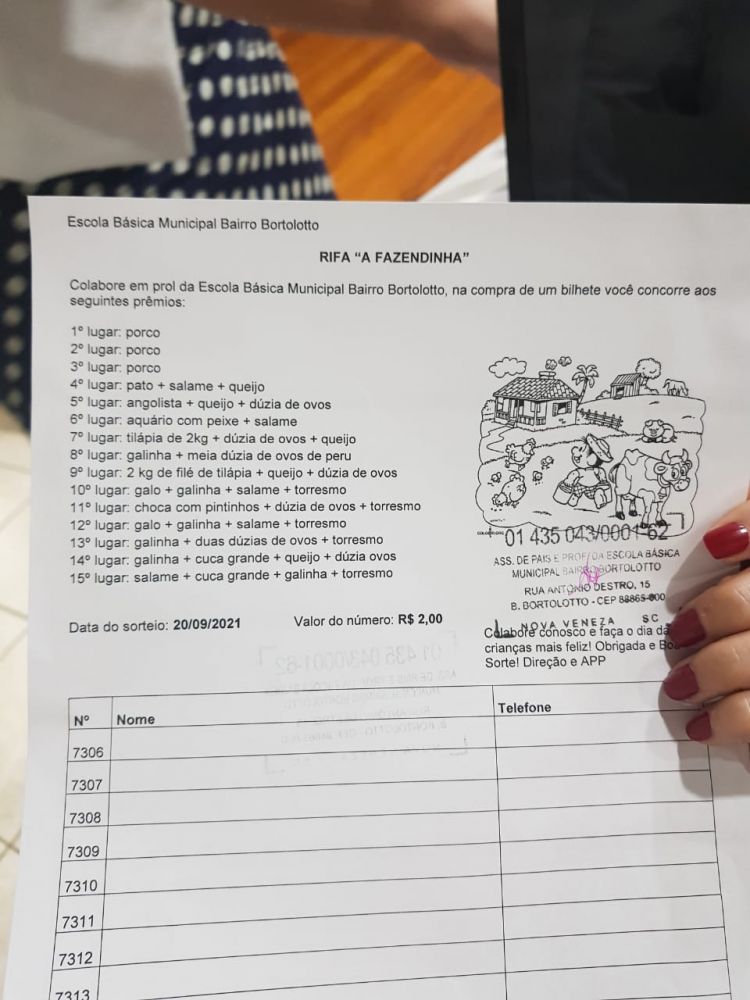 Escola Básica Municipal Bairro Bortolotto
RIFA “A FAZENDINHA”
Colabore em prol da Escola Básica Municipal Bairro Bortolotto, na compra de um bilhete você concorre aos
seguintes prêmios:
1º lugar: porco
2º lugar: porco
3º lugar: porco
4º lugar: pato + salame + queijo
5º lugar: angolista + queijo + dúzia de ovos
6º lugar: aquário com peixe + salame
7º lugar: tilápia de 2kg + dúzia de ovos + queijo
8º lugar: galinha + meia dúzia de ovos de peru
9º lugar: 2 kg de filé de tilápia + queijo + dúzia de ovos
10º lugar: galo + galinha + salame + torresmo
11º lugar: choca com pintinhos + dúzia de ovos + torresmo
12º lugar: galo + galinha + salame + torresmo
13º lugar: galinha + duas dúzias de ovos + torresmo
14º lugar: galinha + cuca grande + queijo + dúzia ovos
15º lugar: salame + cuca grande + galinha + torresmo
01 435 043/0001-62
ASS. DE PAIS E PROF. DA ESCOLA BÁSICA
MUNICIPAL BAIRRO BORTOLOTTO
RUA ANTONIO DESTRO, 15
B. BORTOLOTTO - CEP 88865-000
NOVA VENEZA SC
Data do sorteio: 20/09/2021 Valor do número: R$ 2,00
Colabore conosco e faça o dia da
crianças mais feliz! Obrigada e
Sorte! Direção e APP
Nº Nome Telefone
7306
7307
7308
7309
7310
7311
7312
7313